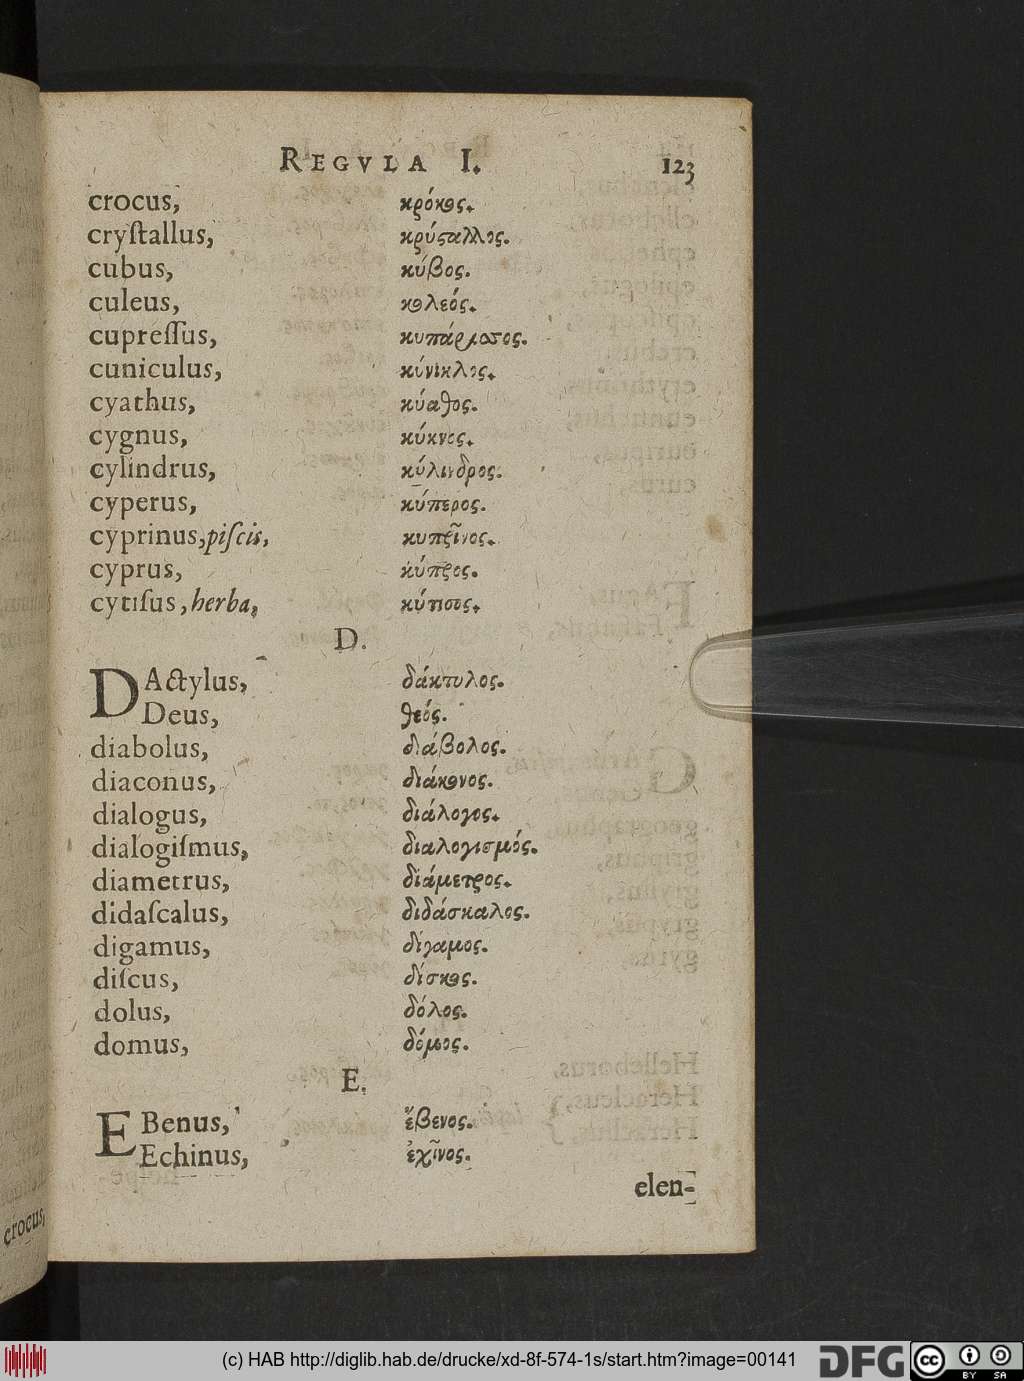 REGVLA I. 123
crocus, κρόκος.
cryſtallus, κρύσταλλος.
cubus, κύβος.
culeus, κολεός.
cupreſſus, κυπάρισσος.
cuniculus, κύνικλος.
cyathus, κύαθος.
cygnus, κύκνος.
cylindrus, κύλινδρος.
cyperus, κύπερος.
cyprinus, piſcis, κυπρῖνος.
cyprus, κύπρος.
cytiſus, herba, κύτισος.
D.
DActylus, δάκτυλος.
Deus, θεός.
diabolus, διάβολος.
diaconus, διάκονος.
dialogus, διάλογος.
dialogiſmus, διαλογισμός.
diametrus, διάμετρος.
didaſcalus, διδάσκαλος.
digamus, δίγαμος.
diſcus, δίσκος.
dolus, δόλος.
domus, δόμος.
E.
EBenus, ἔβενος.
Echinus, ἐχῖνος.
elen-
crocus,
(c) HAB http://diglib.hab.de/drucke/xd-8f-574-1s/start.htm?image=00141 DFG cc BY SA